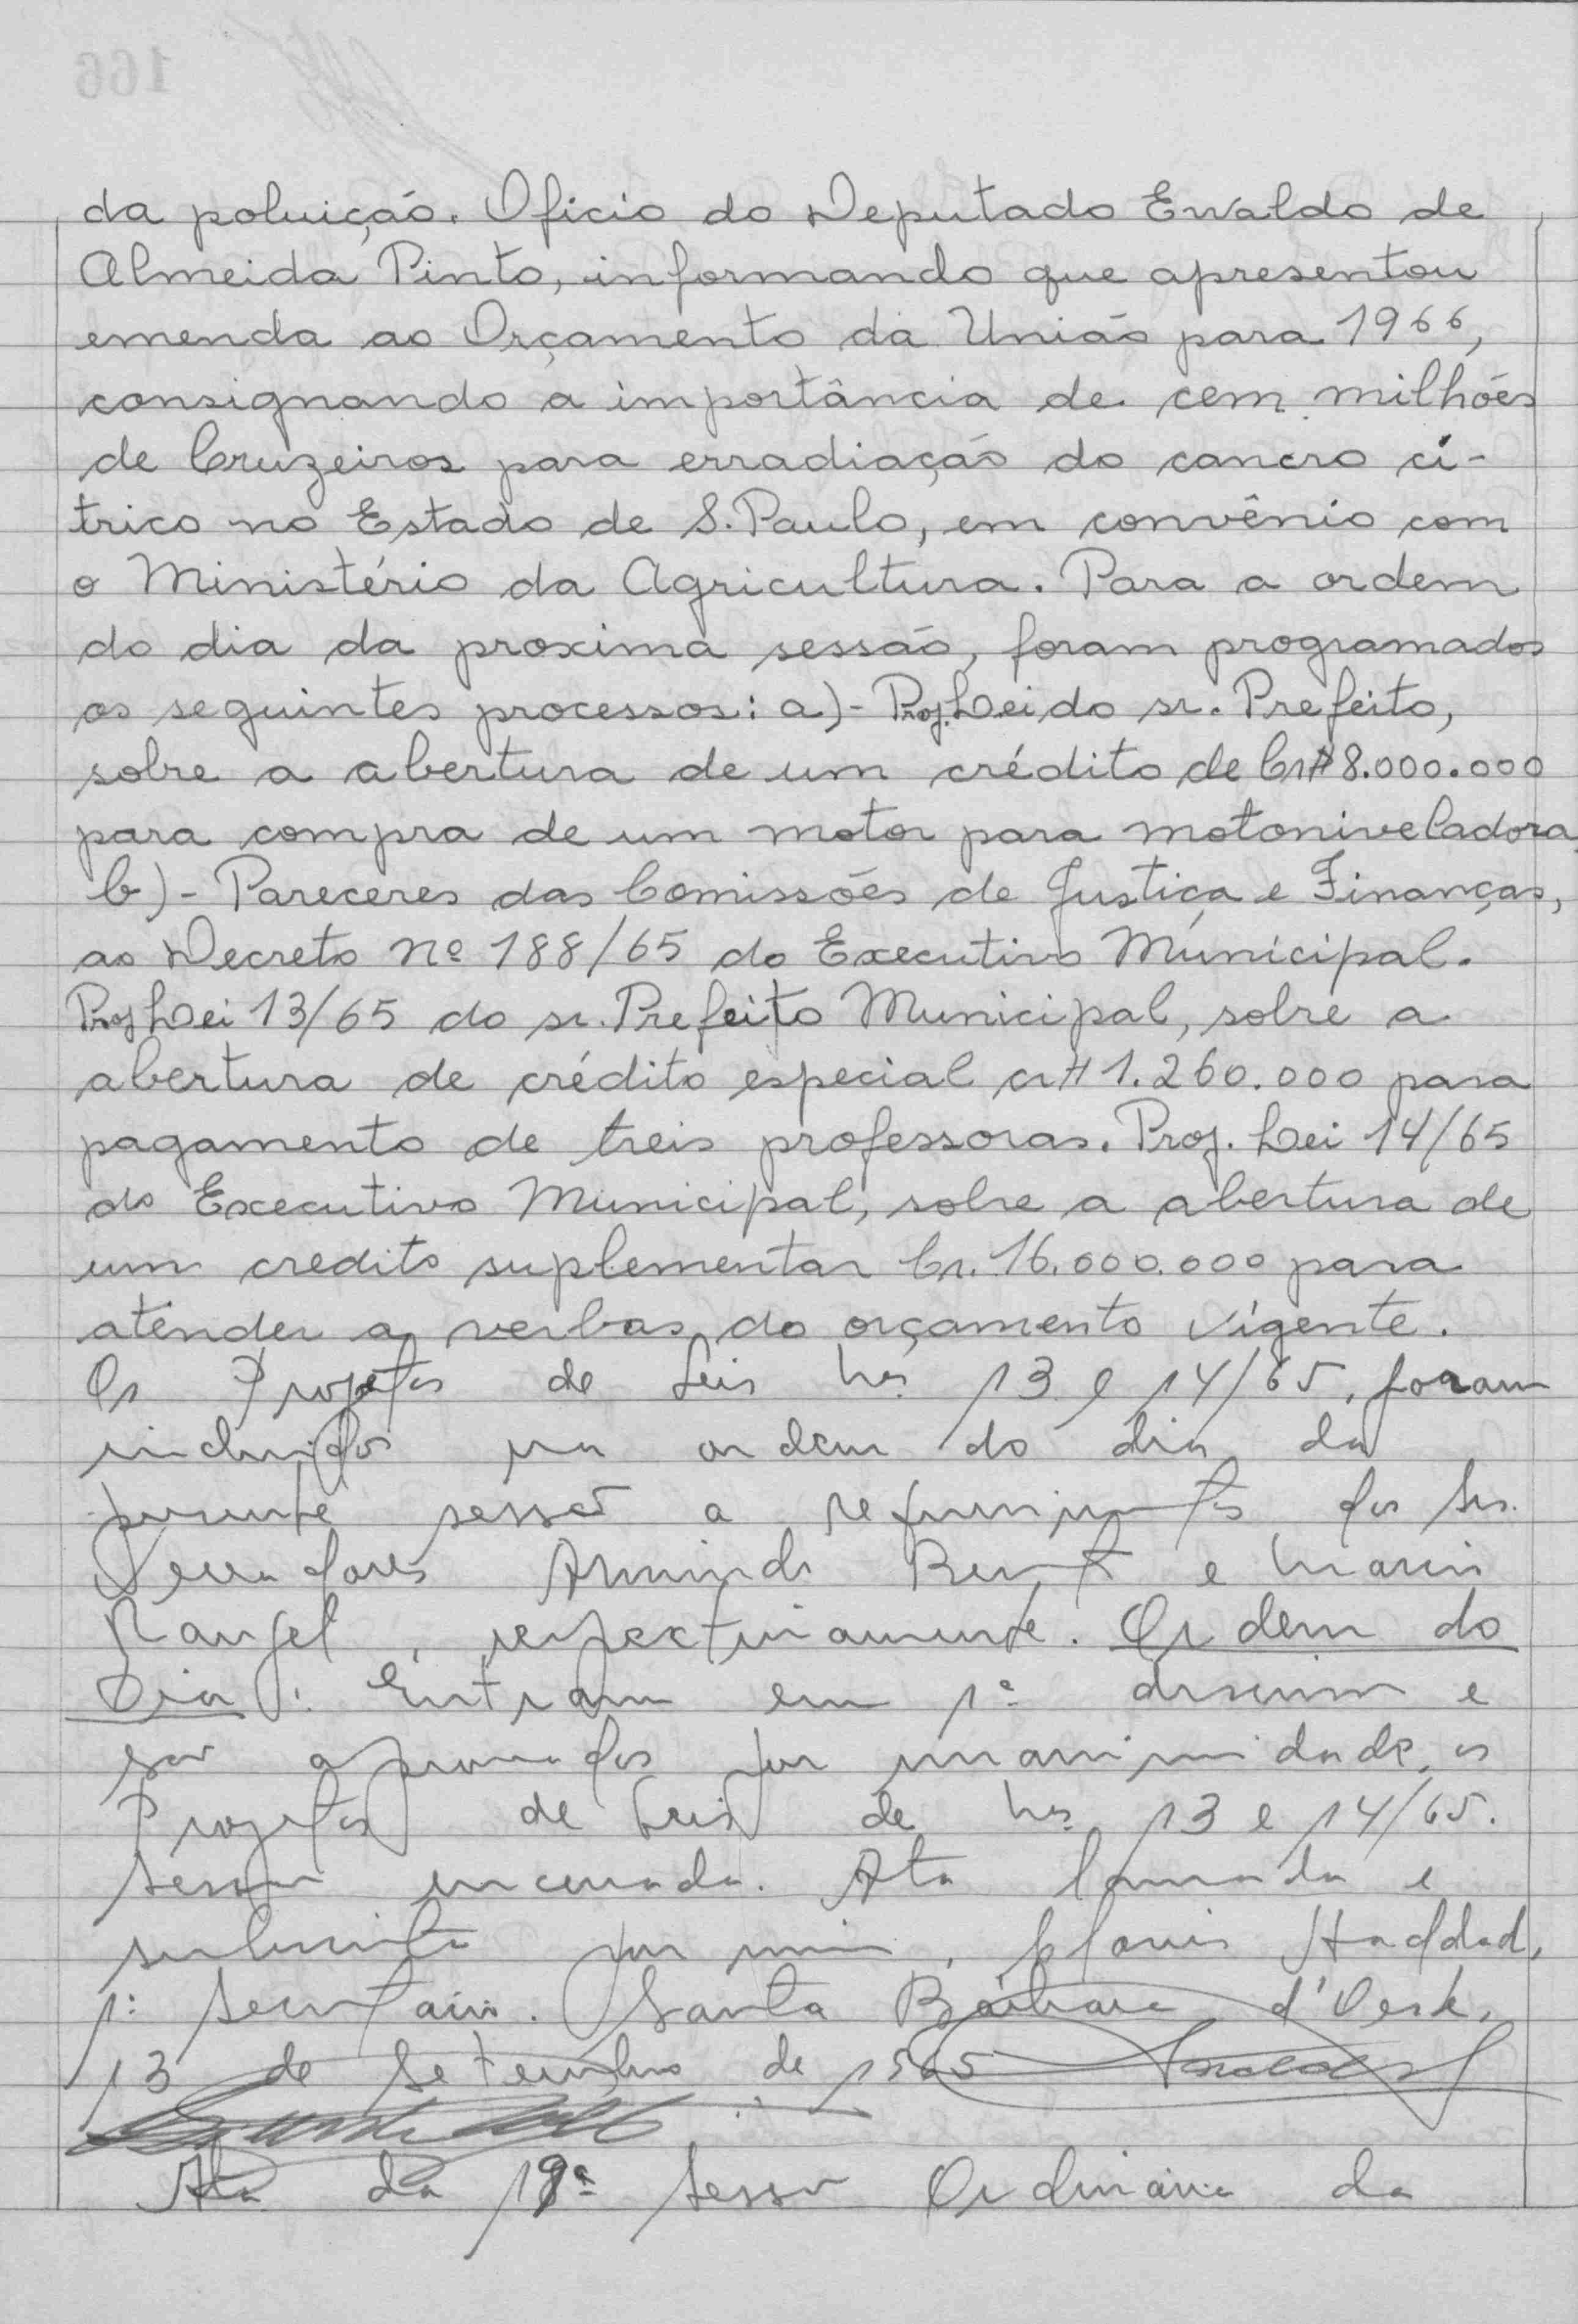 da poluição. Oficio do Deputado Ewaldo de
Almeida Pinto, informando que apresentou
emenda ao Orçamento da União para 1966,
consignando a importância de cem milhões
de Cruzeiros para erradiação do cancro cí-
trico no Estado de S. Paulo, em convênio com
o Ministério da Agricultura. Para a ordem
do dia da proxima sessão, foram programados
os seguintes processos: a)- Proj. Lei do sr. Prefeito,
sobre a abertura de um crédito de Cr$ 8.000.000
para compra de um motor para motoniveladora.
b)- Pareceres das Comissões de Justiça e Finanças,
ao Decreto Nº 188/65 do Executivo Municipal.
Proj Lei 13/65 do sr. Prefeito Municipal, sobre a
abertura de crédito especial cr$ 1.260.000 para
pagamento de treis professoras. Proj. Lei 14/65
do Executivo Municipal, sobre a abertura de
um credito suplementar Cr. 16.000.000 para
atender a verbas do orçamento vigente.
Os Projetos de Leis nºs 13 e 14/65, foram
incluidos na ordem do dia da
presente sessão a requerimentos dos Srs.
Vereadores Armindo e Mario
Rangel, respectivamente. Ordem do
Dia: Entram em 1ª discussão e
são aprovados por unanimidade, os
Projetos de Leis de nºs 13 e 14/65.
Sessão encerrada. Ata lavrada e
subscrita por mim, Clovis Haddad,
1º Secretário. Santa Bárbara d'Oeste,
13 de Setembro de 1965
Ata da Sessão Ordinária da